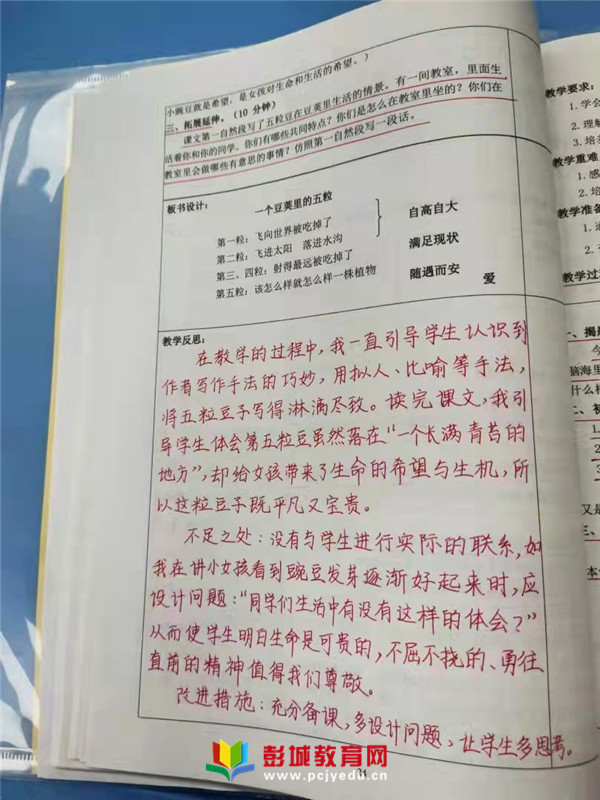 小豌豆就是希望，是女孩对生命和生活的希望。）
三、拓展延伸。（10 分钟）
课文第一自然段写了五粒豆在豆荚里生活的情景。有一间教室，里面生
活着你和你的同学。你们有哪些共同特点？你们是怎么在教室里坐的？你们在
教室里会做哪些有意思的事情？仿照第一自然段写一段话。
板书设计：
一个豆荚里的五粒
第一粒：飞向世界被吃掉了
第二粒：飞进太阳 落进水沟
自高自大
第三、四粒：射得最远被吃掉了
满足现状
第五粒：该怎么样就怎么样一株植物
随遇而安 爱
教学反思：
在教学的过程中，我一直引导学生认识到
作者写作手法的巧妙，用拟人、比喻等手法，
将五粒豆子写得淋漓尽致。读完课文，我引
导学生体会第五粒豆虽然落在“一个长满青苔的
地方”，却给女孩带来了生命的希望与生机，所
以这粒豆子既平凡又宝贵。
不足之处：没有与学生进行实际的联系，如
我在讲小女孩看到豌豆发芽逐渐好起来时，应
设计问题：“同学们生活中有没有这样的体会？”
从而使学生明白生命是可贵的，不屈不挠的、勇往
直前的精神值得我们尊敬。
改进措施：充分备课，多设计问题，让学生多思考。
教学要求：
1. 学会
2. 理解
3. 培养
教学重难
1. 感
2. 培
教学准备
1.
2.
教学过
一、揭
今
脑海里
什么样
二、初
1.
2.
3.
4.
又是
三、
本
彭城教育网
www.pcjyedu.cn